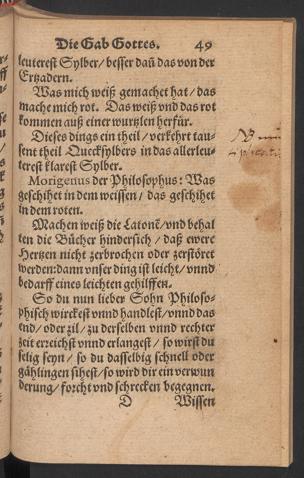 Die Gab Gottes. 49
leuterest Sylber / besser dañ das von der
Ertzadern.
Was mich weiß gemachet hat / das
mache mich rot. Das weiß vnd das rot
kommen auß einer wurtzlen herfür.
Dieses dings ein theil / verkehrt tau-
sent theil Quecksylbers in das allerleu-
terest klarest Sylber.
Morigenus der Philosophus: Was
geschihet in dem weissen / das geschihet
in dem roten.
Machen weiß die Latonē / vnd behal
ten die Bücher hindersich / daß ewere
Hertzen nicht zerbrochen oder zerstöret
werden: dann vnser ding ist leicht / vnnd
bedarff eines leichten gehilffen.
So du nun lieber Sohn Philoso-
phisch wirckest vnnd handlest / vnnd das
end / oder zil / zu derselben vnnd rechter
zeit erreichst vnnd erlangest / so wirst du
selig seyn / so du dasselbig schnell oder
gählingen sihest / so wird dir ein verwun
derung / forcht vnd schrecken begegnen.
D Wissen